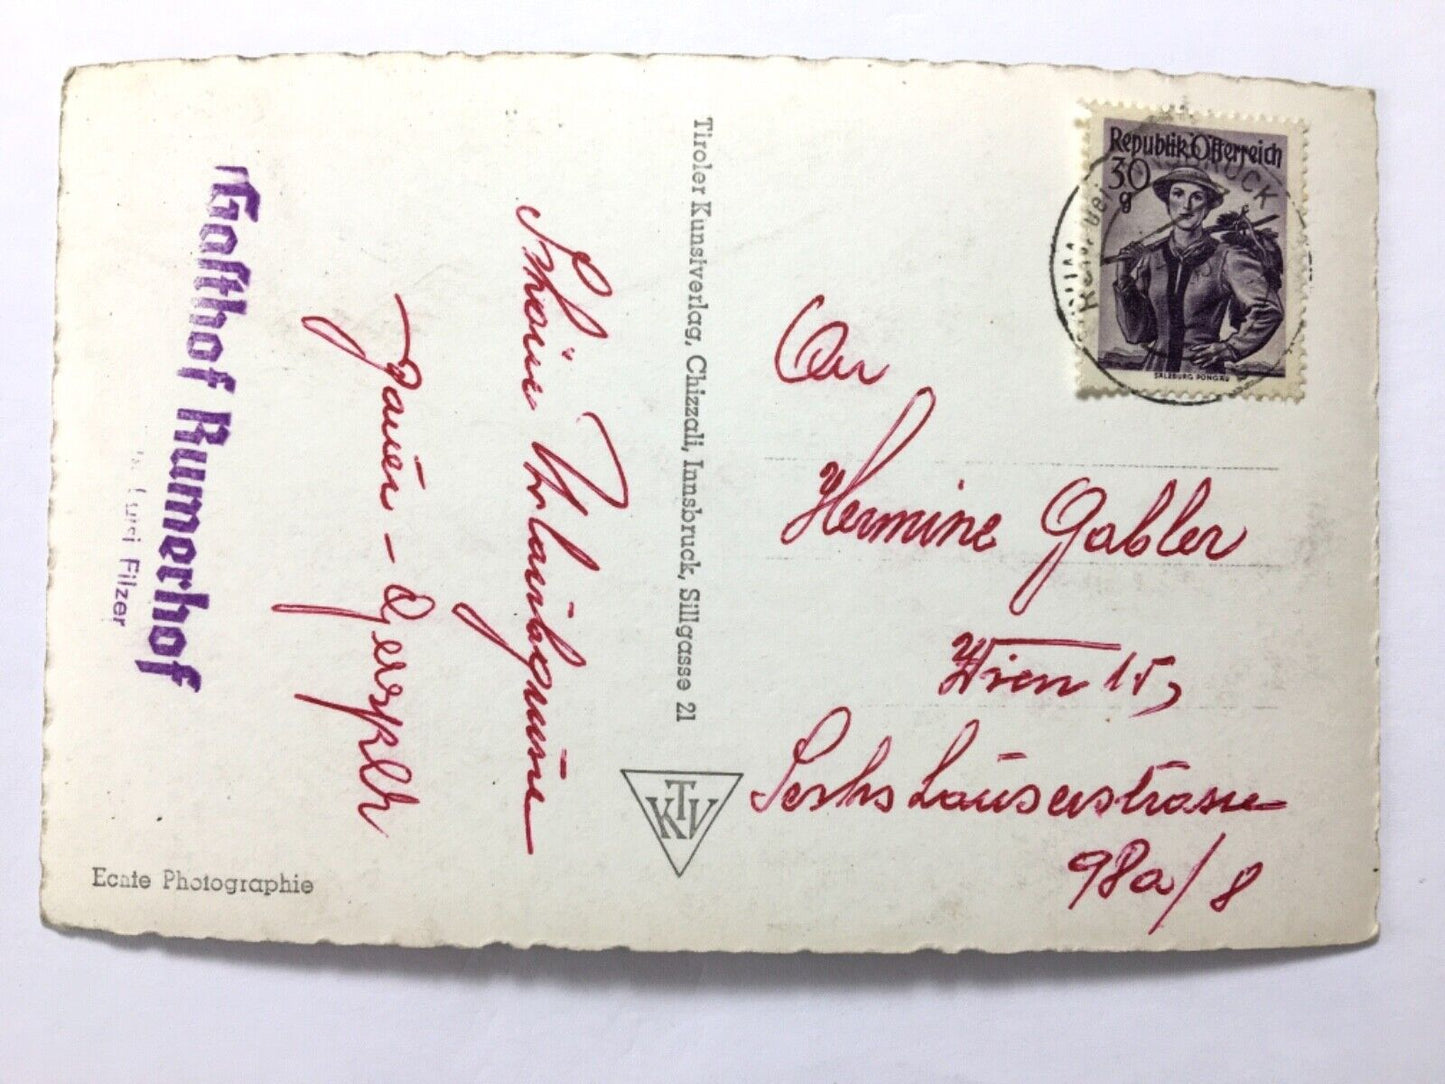 Gasthof Rumerhof
Luisi Filzer
Schöne Urlaubsgrüsse
Echte Photographie
Tiroler Kunstverlag, Chizzali, Innsbruck, Sillgasse 21
KTV
Republik Österreich
30
g
SALZBURG PONGAU
RUM bei INNSBRUCK
An
Hermine Gabler
Wien 15,
Sechshauserstrasse
98a/8